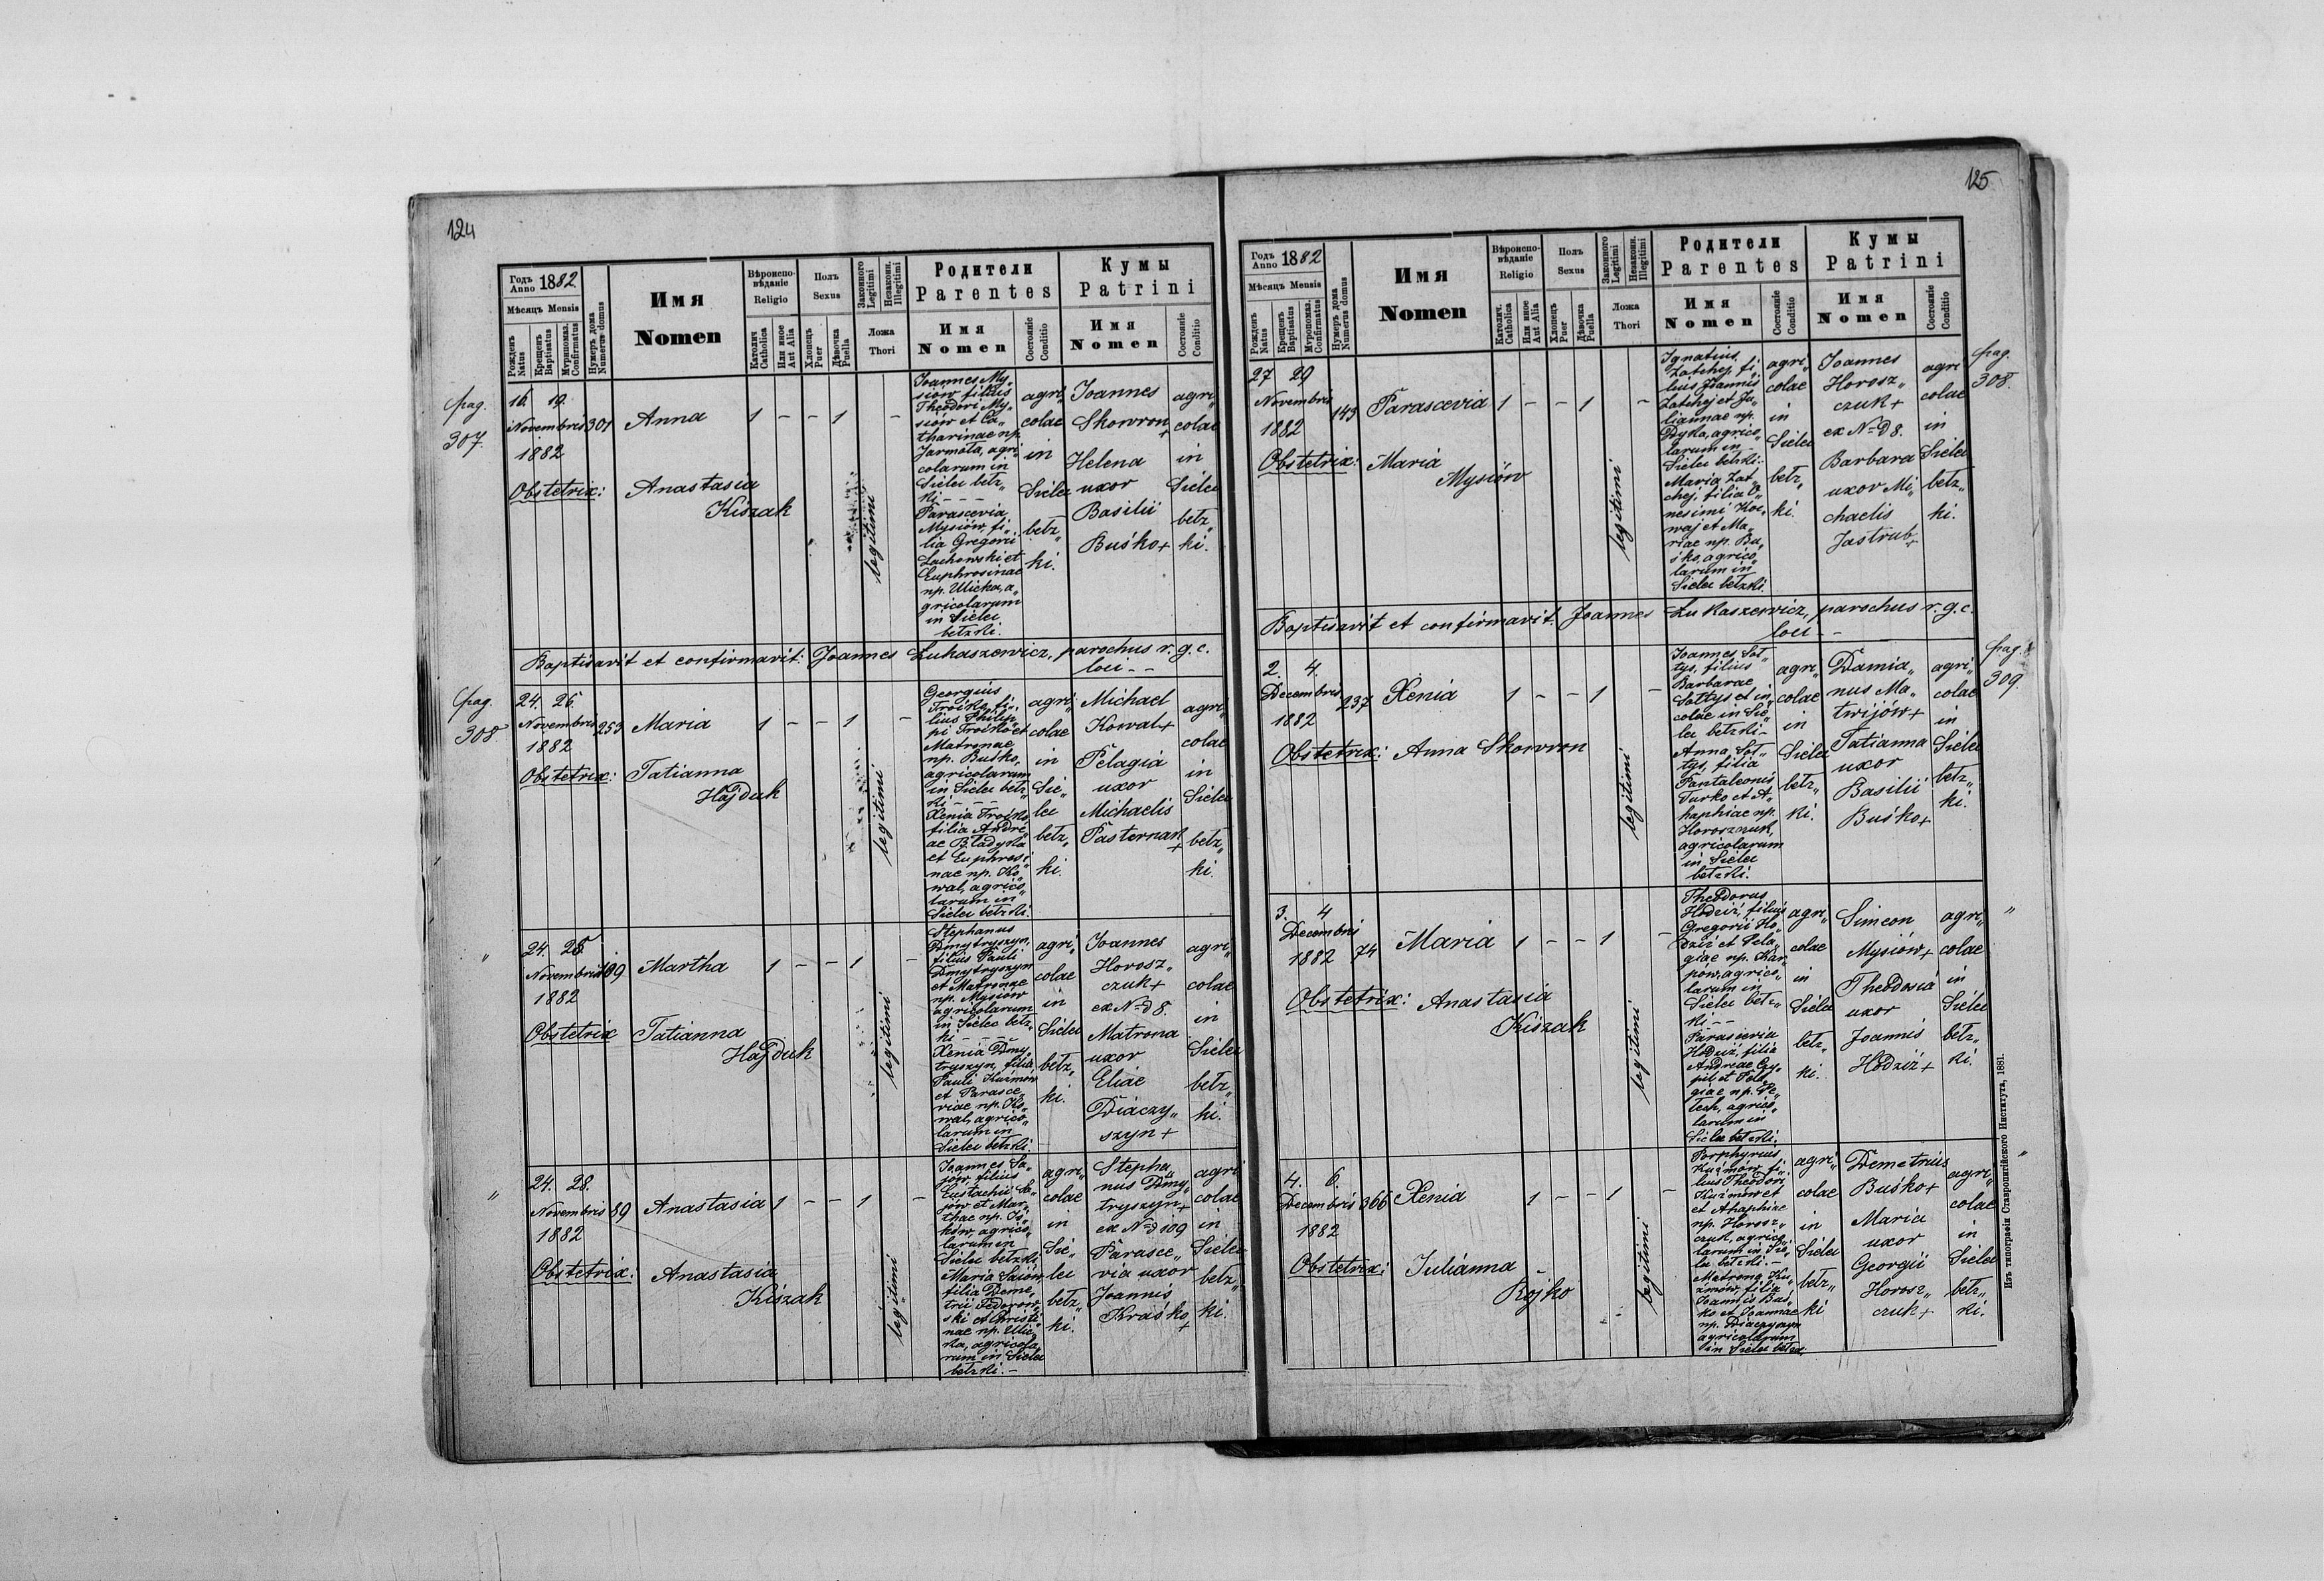 124
Годъ Anno 1882
Мѣсяцъ Mensis
Рожденъ Natus
Крещенъ Baptisatus
Муропомаз. Confirmatus
Нумеръ дома Numerus domus
Имя
Nomen
Вѣроиспо-
вѣданіе
Religio
Католич Catholica
Или иное Aut Alia
Полъ
Sexus
Хлопецъ Puer
Дѣвочка Puella
Законного Legitimi
Незаконн. Illegitimi
Ложа
Thori
Родители
Parentes
Имя
Nomen
Состояніе Conditio
Кумы
Patrini
Имя
Nomen
Состояніе Conditio
pag.
307.
16. 19.
Novembris 301
1882
Anna
1 - - 1 -
legitimi
Obstetrix: Anastasia
Kiszak
Joannes My„
siów filius
Theodori My„
siów et Ca„
tharinae np.
Jarmola, agri„
colarum in
Sielec bełz„
ki - - -
Parascevia
Mysiów, fi„
lia Gregorii
Lachowski et
Euphrosinae
np. Ulicka, a„
gricolarum
in Sielec
bełzki.
agri„
colae
in
Sielec
bełz„
ki.
Joannes
Skowron +
Helena
uxor
Basilii
Buśko +
agri„
colae
in
Sielec
bełz„
ki.
Baptisavit et confirmavit: Joannes Łukaszewicz, parochus r. g. c.
loci - -
pag.
308
24. 26.
Novembris 253
1882
Maria
1 - - 1 -
legitimi
Obstetrix: Tatianna
Hajduk
Georgius
Troiko, fi„
lius Philip„
pi Troiko et
Matronae
np. Buśko,
agricolarum
in Sielec bełz„
ki - - -
Xenia Troiko,
filia Andre„
ae Bładyka
et Euphrosi„
nae np. Ko„
wal, agrico„
larum in
Sielec bełzki.
agri„
colae
in
Sie„
lec
bełz„
ki.
Michael
Kowal +
Pelagia
uxor
Michaelis
Pasternak +
agri„
colae
in
Sielec
bełz„
ki.
"
24. 28.
Novembris 109
1882
Martha
1 - - 1 -
legitimi
Obstetrix Tatianna
Hajduk
Stephanus
Dmytryszyn,
filius Pauli
Dmytryszyn
et Matronae
np. Mysiów
agricolarum
in Sielec bełz„
ki - - -
Xenia Dmy„
tryszyn, filia
Pauli Kuźmow
et Parasce„
viae np. Ko„
wal, agrico„
larum in
Sielec bełzki.
agri„
colae
in
Sielec
bełz„
ki.
Joannes
Horosz„
czuk +
ex No 8.
Matrona
uxor
Eliae
Diaczy„
szyn +
agri„
colae
in
Sielec
bełz„
ki.
"
24. 28.
Novembris 89
1882
Anastasia
1 - - 1 -
legitimi
Obstetrix: Anastasia
Kiszak
Joannes Sa„
jów, filius
Eustachii Sa„
jów et Mar„
thae np.
ków, agrico„
larum in
Sielec bełzki
Maria Saiów,
filia Deme„
trii Fedorow„
ski et Christi„
nae np. Ulic„
ka, agricola„
rum in Sielec
bełzki. -
agri„
colae
in
Sie„
lec
bełz„
ki.
Stepha„
nus Dmy„
tryszyn +
ex No 109
Parasce„
via uxor
Joannis
Kraśko +
agri„
colae
in
Sielec
bełz„
ki.
125
Годъ Anno 1882
Мѣсяцъ Mensis
Рожденъ Natus
Крещенъ Baptisatus
Муропомаз. Confirmatus
Нумеръ дома Numerus domus
Имя
Nomen
Вѣроиспо-
вѣданіе
Religio
Католич. Catholica
Или иное Aut Alia
Полъ
Sexus
Хлопецъ Puer
Дѣвочка Puella
Законного Legitimi
Незаконн. Illegitimi
Ложа
Thori
Родители
Parentes
Имя
Nomen
Состояніе Conditio
Кумы
Patrini
Имя
Nomen
Состояніе Conditio
pag.
308.
27 29
Novembris 143
1882
Parascevia
1 - - 1 -
legitimi
Obstetrix: Maria
Mysiów
Ignatius
Zatchej, fi„
lius Joannis
Zatchej et Ju„
liannae np.
Dyka, agrico„
larum in
Sielec bełzki.
Maria Zat„
chej, filia O„
nesimi Kor„
waj et Ma„
riae np. Bu„
śko, agrico„
larum in
Sielec bełzki.
agri„
colae
in
Sielec
bełz„
ki.
Joannes
Horosz„
czuk +
ex No 8.
Barbara
uxor Mi„
chaelis
Jastrub +
agri
colae
in
Sielec
bełz„
ki.
Baptisavit et confirmavit: Joannes Łukaszewicz, parochus r. g. c.
loci - -
pag.
309.
2. 4.
Decembris 237
1882
Xenia
1 - - 1 -
legitimi
Obstetrix: Anna Skowron
Joannes Soł„
tys, filius
Barbarae
Sołtys et in„
colae in Sie„
lec bełzki -
Anna Soł„
tys, filia
Pantaleonis
Turko et A„
haphiae np.
Horosznuk,
agricolarum
in Sielec
bełzki.
agri„
colae
in
Sielec
bełz„
ki.
Damia„
nus Ma„
twijów +
Tatianna
uxor
Basilii
Buśko +
agri„
colae
in
Sielec
bełz„
ki.
"
3. 4
Decembris
1882 74
Maria
1 - - 1 -
legitimi
Obstetrix: Anastasia
Kiszak
Theodorus
Hodziź, filius
Gregorii Ho„
dziź et Pela„
giae np. Kar„
pow, agrico„
larum in
Sielec bełz„
ki - -
Parascevia
Hodziź, filia
Andreae Czy„
pil et Pela„
giae np. Pe„
lech, agrico„
larum in
Sielec bełzki.
agri„
colae
in
Sielec
bełz„
ki.
Simeon
Mysiów +
Theodosia
uxor
Joannis
Hodziź +
agri„
colae
in
Sielec
bełz„
ki.
"
4. 6.
Decembris 366
1882
Xenia
1 - - 1 -
legitimi
Obstetrix: Iulianna
Rojko
Porphyrius
Kuźmów, fi„
lius Theodori
Kuźmow et
et Ahaphiae
np. Horosz„
czuk, agrico„
larum in Sie„
lec bełzki. -
Matrona Ku„
źmów, filia
Joannis Buś„
ko et Joannae
np. Diaczyszyn
agricolarum
in Sielec bełzki.
agri„
colae
in
Sielec
bełz„
ki
Demetrius
Buśko +
Maria
uxor
Georgii
Horosz„
czuk +
agri„
colae
in
Sielec
bełz„
ki.
Изъ типографіи Ставропигійского Института, 1881.